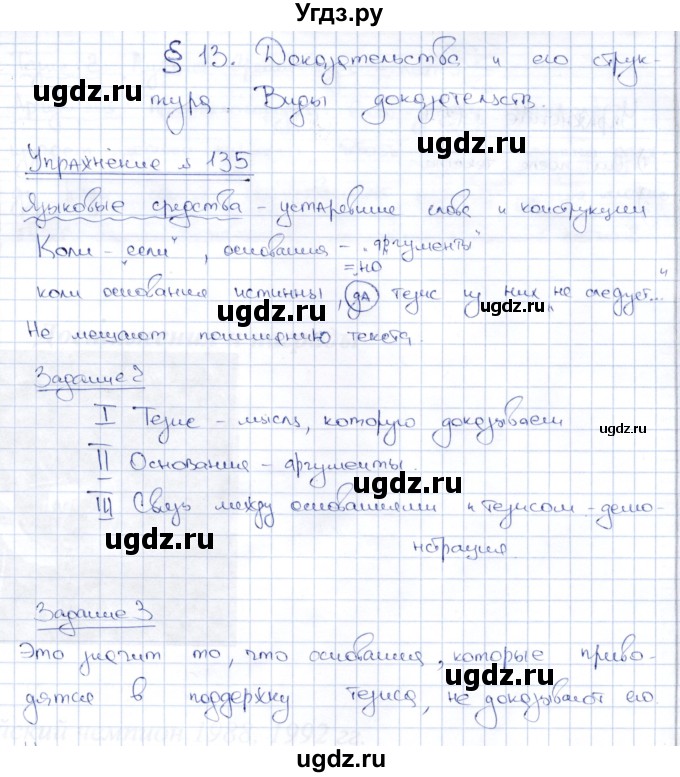 Угдз.ру
§ 13. Доказательства и его струк-
тура. Виды доказательств.
ugdz.ru
ugdz.ru
Упражнение № 135
Языковые средства - устаревшие слова и конструкции
Коли - "если", основания - "аргументы"
= но
коли основания истинны, да тезис из них не следует..."
Не мешают пониманию текста.
ugdz.ru
ugdz.ru
Задание 2
I Тезис - мысль, которую доказываем
ugdz.ru
II Основание - аргументы.
ugdz.ru
III Связь между основаниями и тезисом - демо-
ugdz.ru
нстрация.
Задание 3
ugdz.ru
Это значит то, что основания, которые приво-
дятся в поддержку тезиса, не доказывают его.
ugdz.ru
ugdz.ru
Угдз.ру